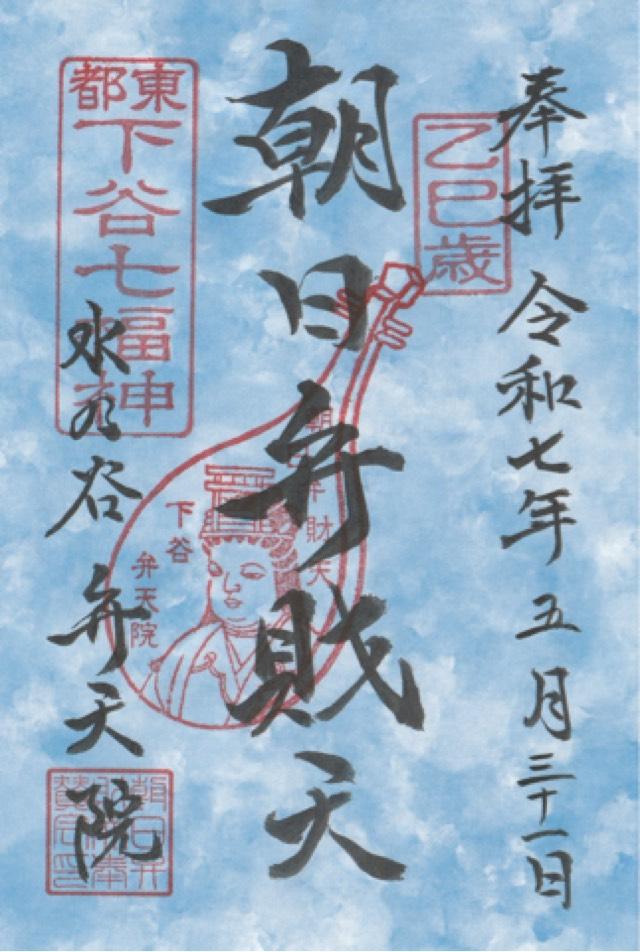 奉拝 令和七年五月三十一日
乙巳歳
朝日弁財天
朝日弁財天
下谷
弁天院
東都
下谷七福神
水の谷 弁天院